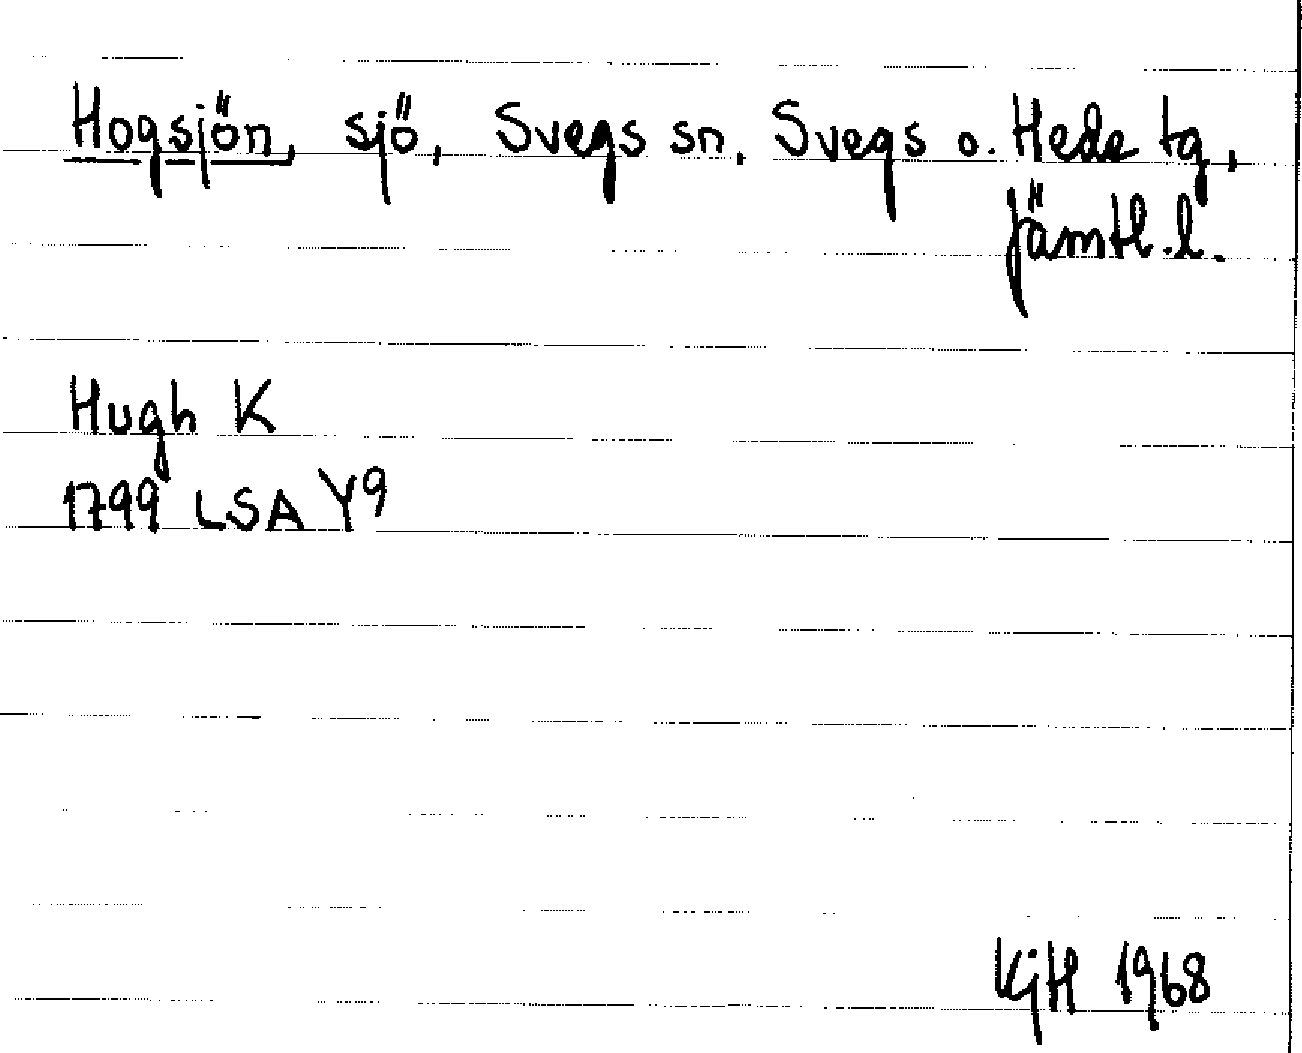 Hogsjön, sjö, Svegs sn, Svegs o. Hede tg,
Jämtl. l.
Hugh K
1799 LSA Y9
KjH 1968